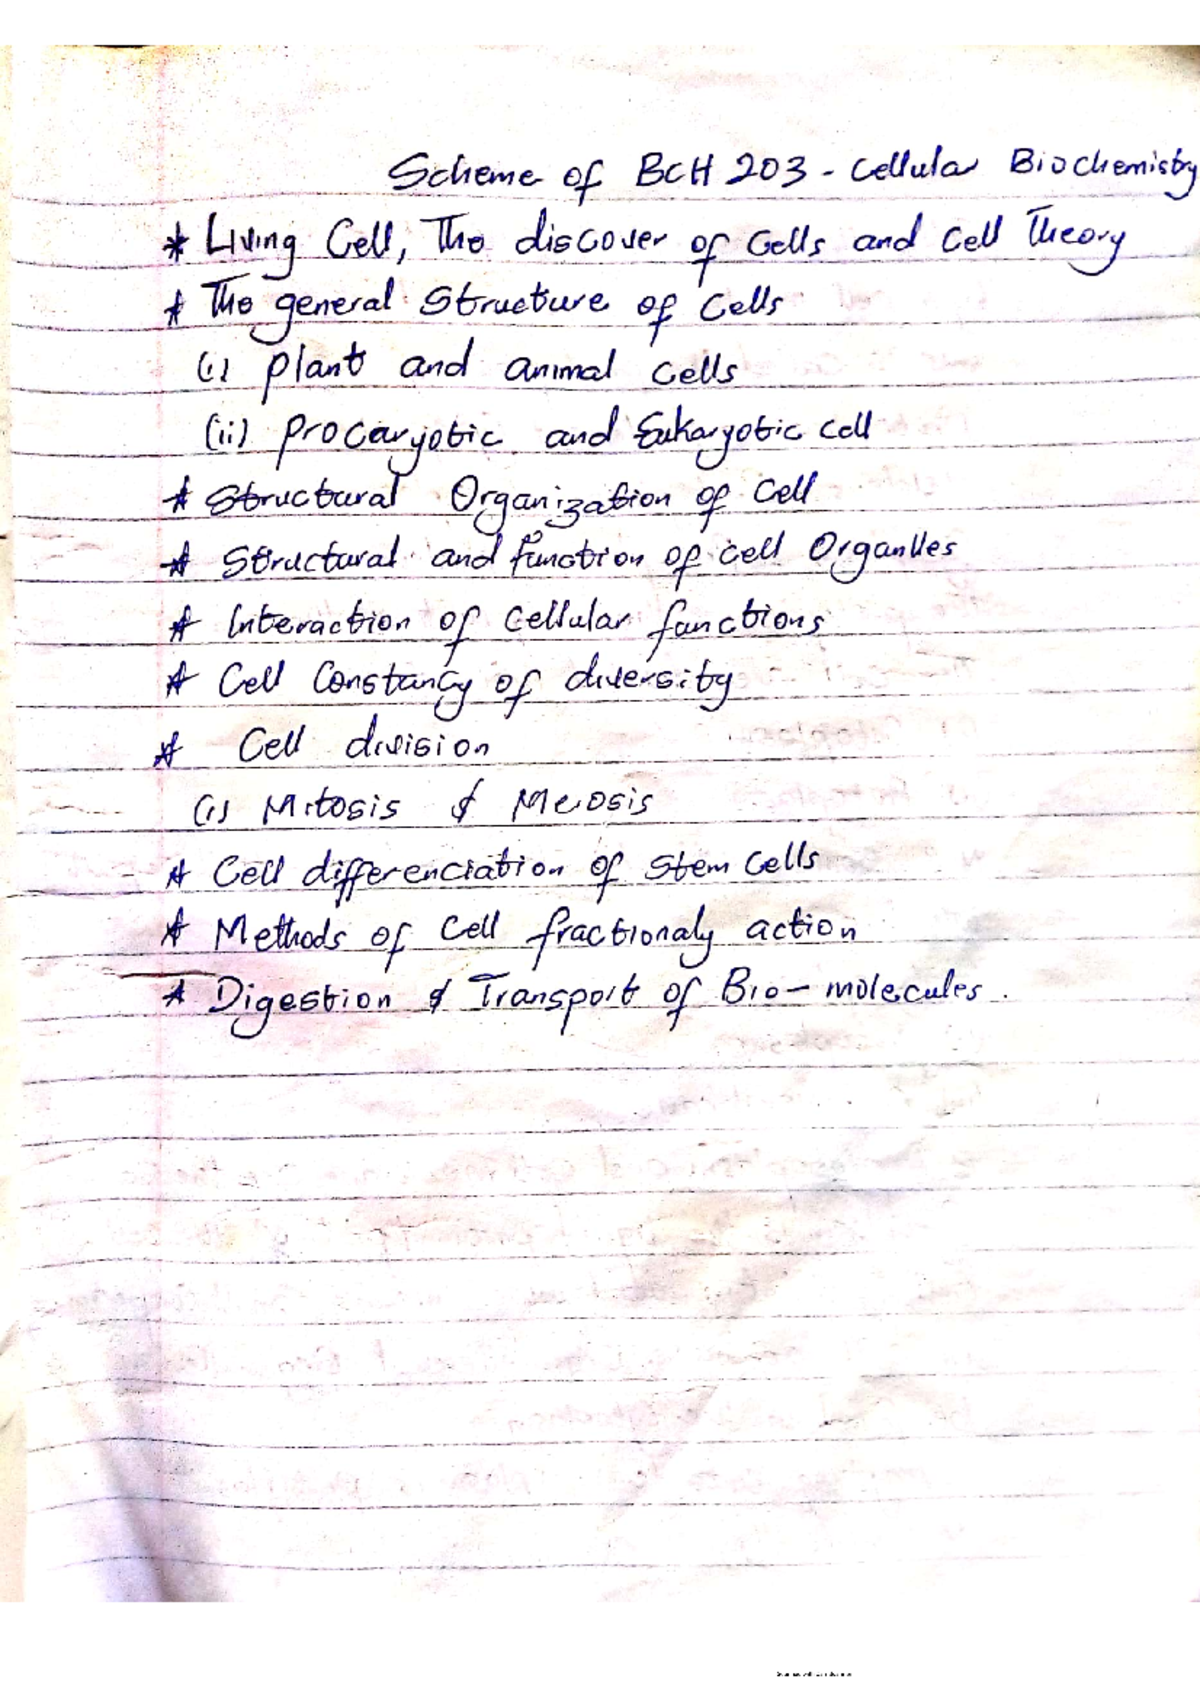 Scheme of BCH 203 - Cellular Biochemistry
* Living Cell, The discover of Cells and Cell Theory
* The general Structure of Cells
(i) plant and animal cells
(ii) procaryotic and Eukaryotic cell
* Structural Organization of Cell
* Structural and function of cell Organlles
* Interaction of Cellular functions
* Cell Constancy of diversity
* Cell division
(i) Mitosis & Meiosis
* Cell differenciation of Stem Cells
* Methods of Cell fractionaly action
* Digestion & Transport of Bio-molecules.